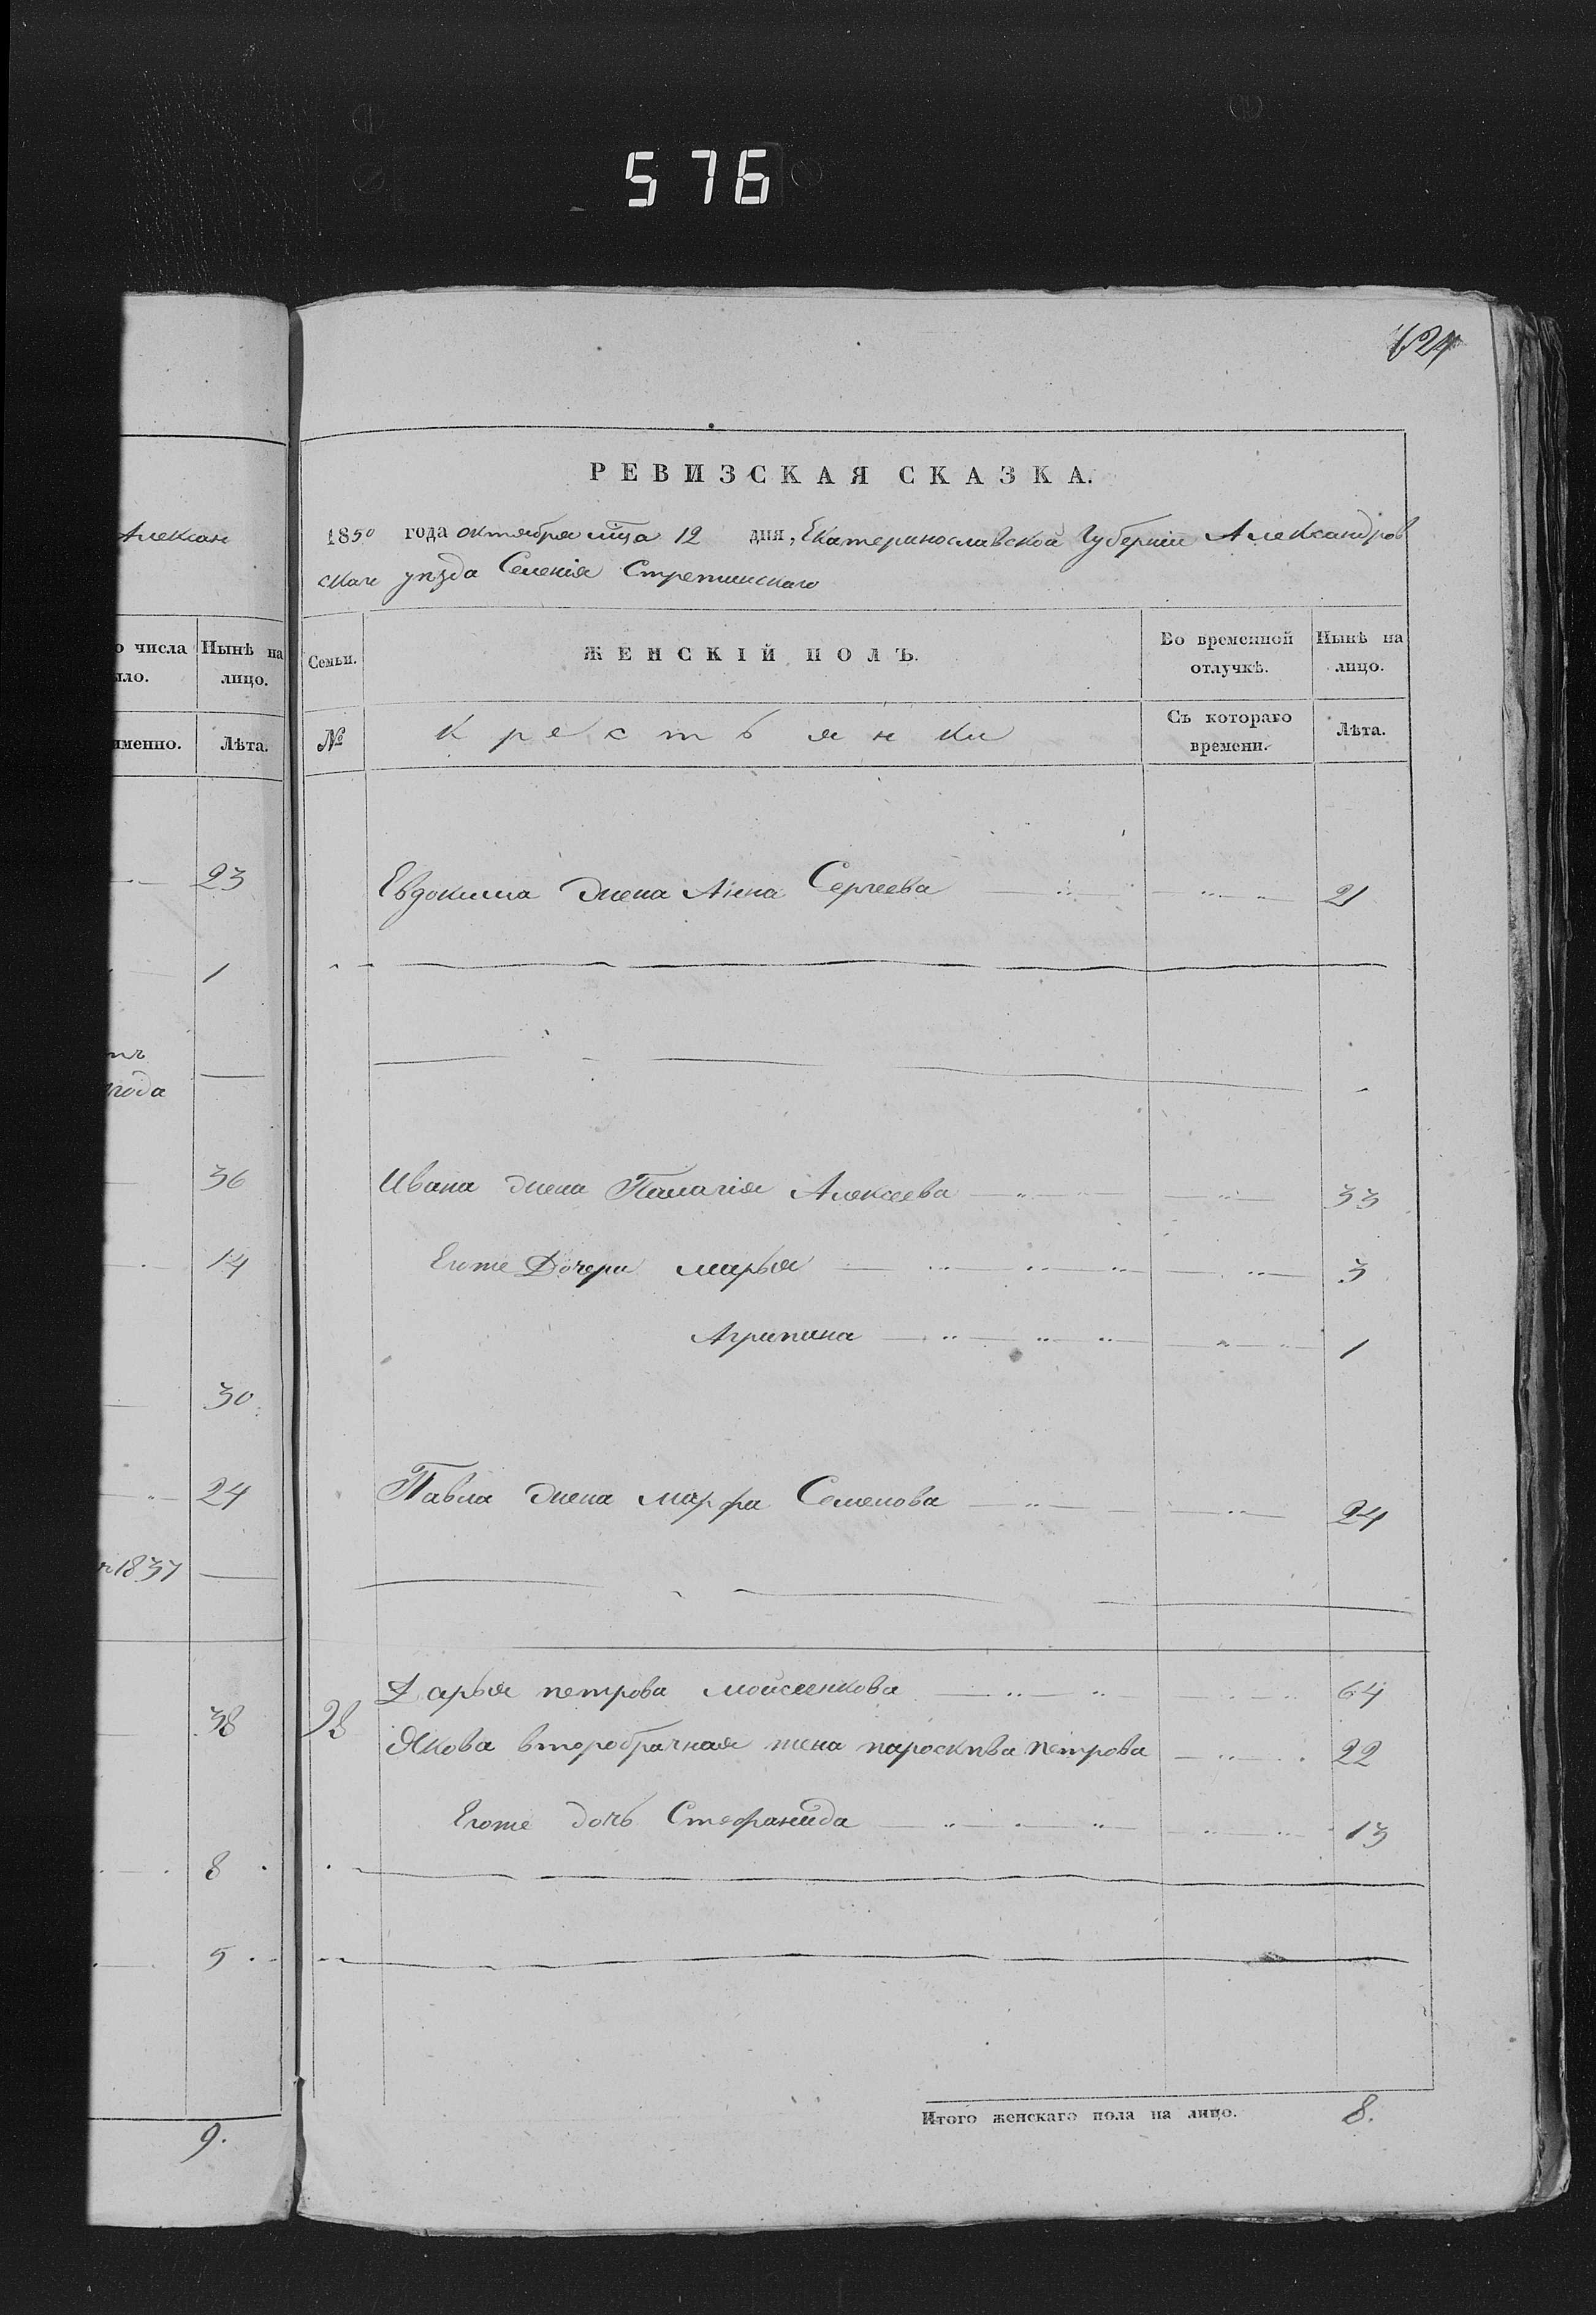 576
624
Алексан
о числа Нынѣ на
ыло. лицо.
именно. Лѣта.
23
1
тъ
года
36
14
30
24
1837
38
8
5
9.
РЕВИЗСКАЯ СКАЗКА.
1850 года октября мца 12 дня, Екатеринославской Губерніи Александров
скаго уѣзда Селенія
Семьи. ЖЕНСКІЙ ПОЛЪ. Во временной отлучкѣ. Нынѣ на лицо.
№ Крестьянки Съ котораго времени. Лѣта.
Евдокима жена Анна Сергеева 21
Ивана жена Палагія Алексеева 33
Егоже Дочери марья 3
Агрипина 1
Павла жена марфа Семенова 24
Дарья петрова моисеенкова 64
28 Якова второбрачная жена пароскива петрова 22
Егоже дочь Стефанида 13
Итого женскаго пола на лицо. 8.